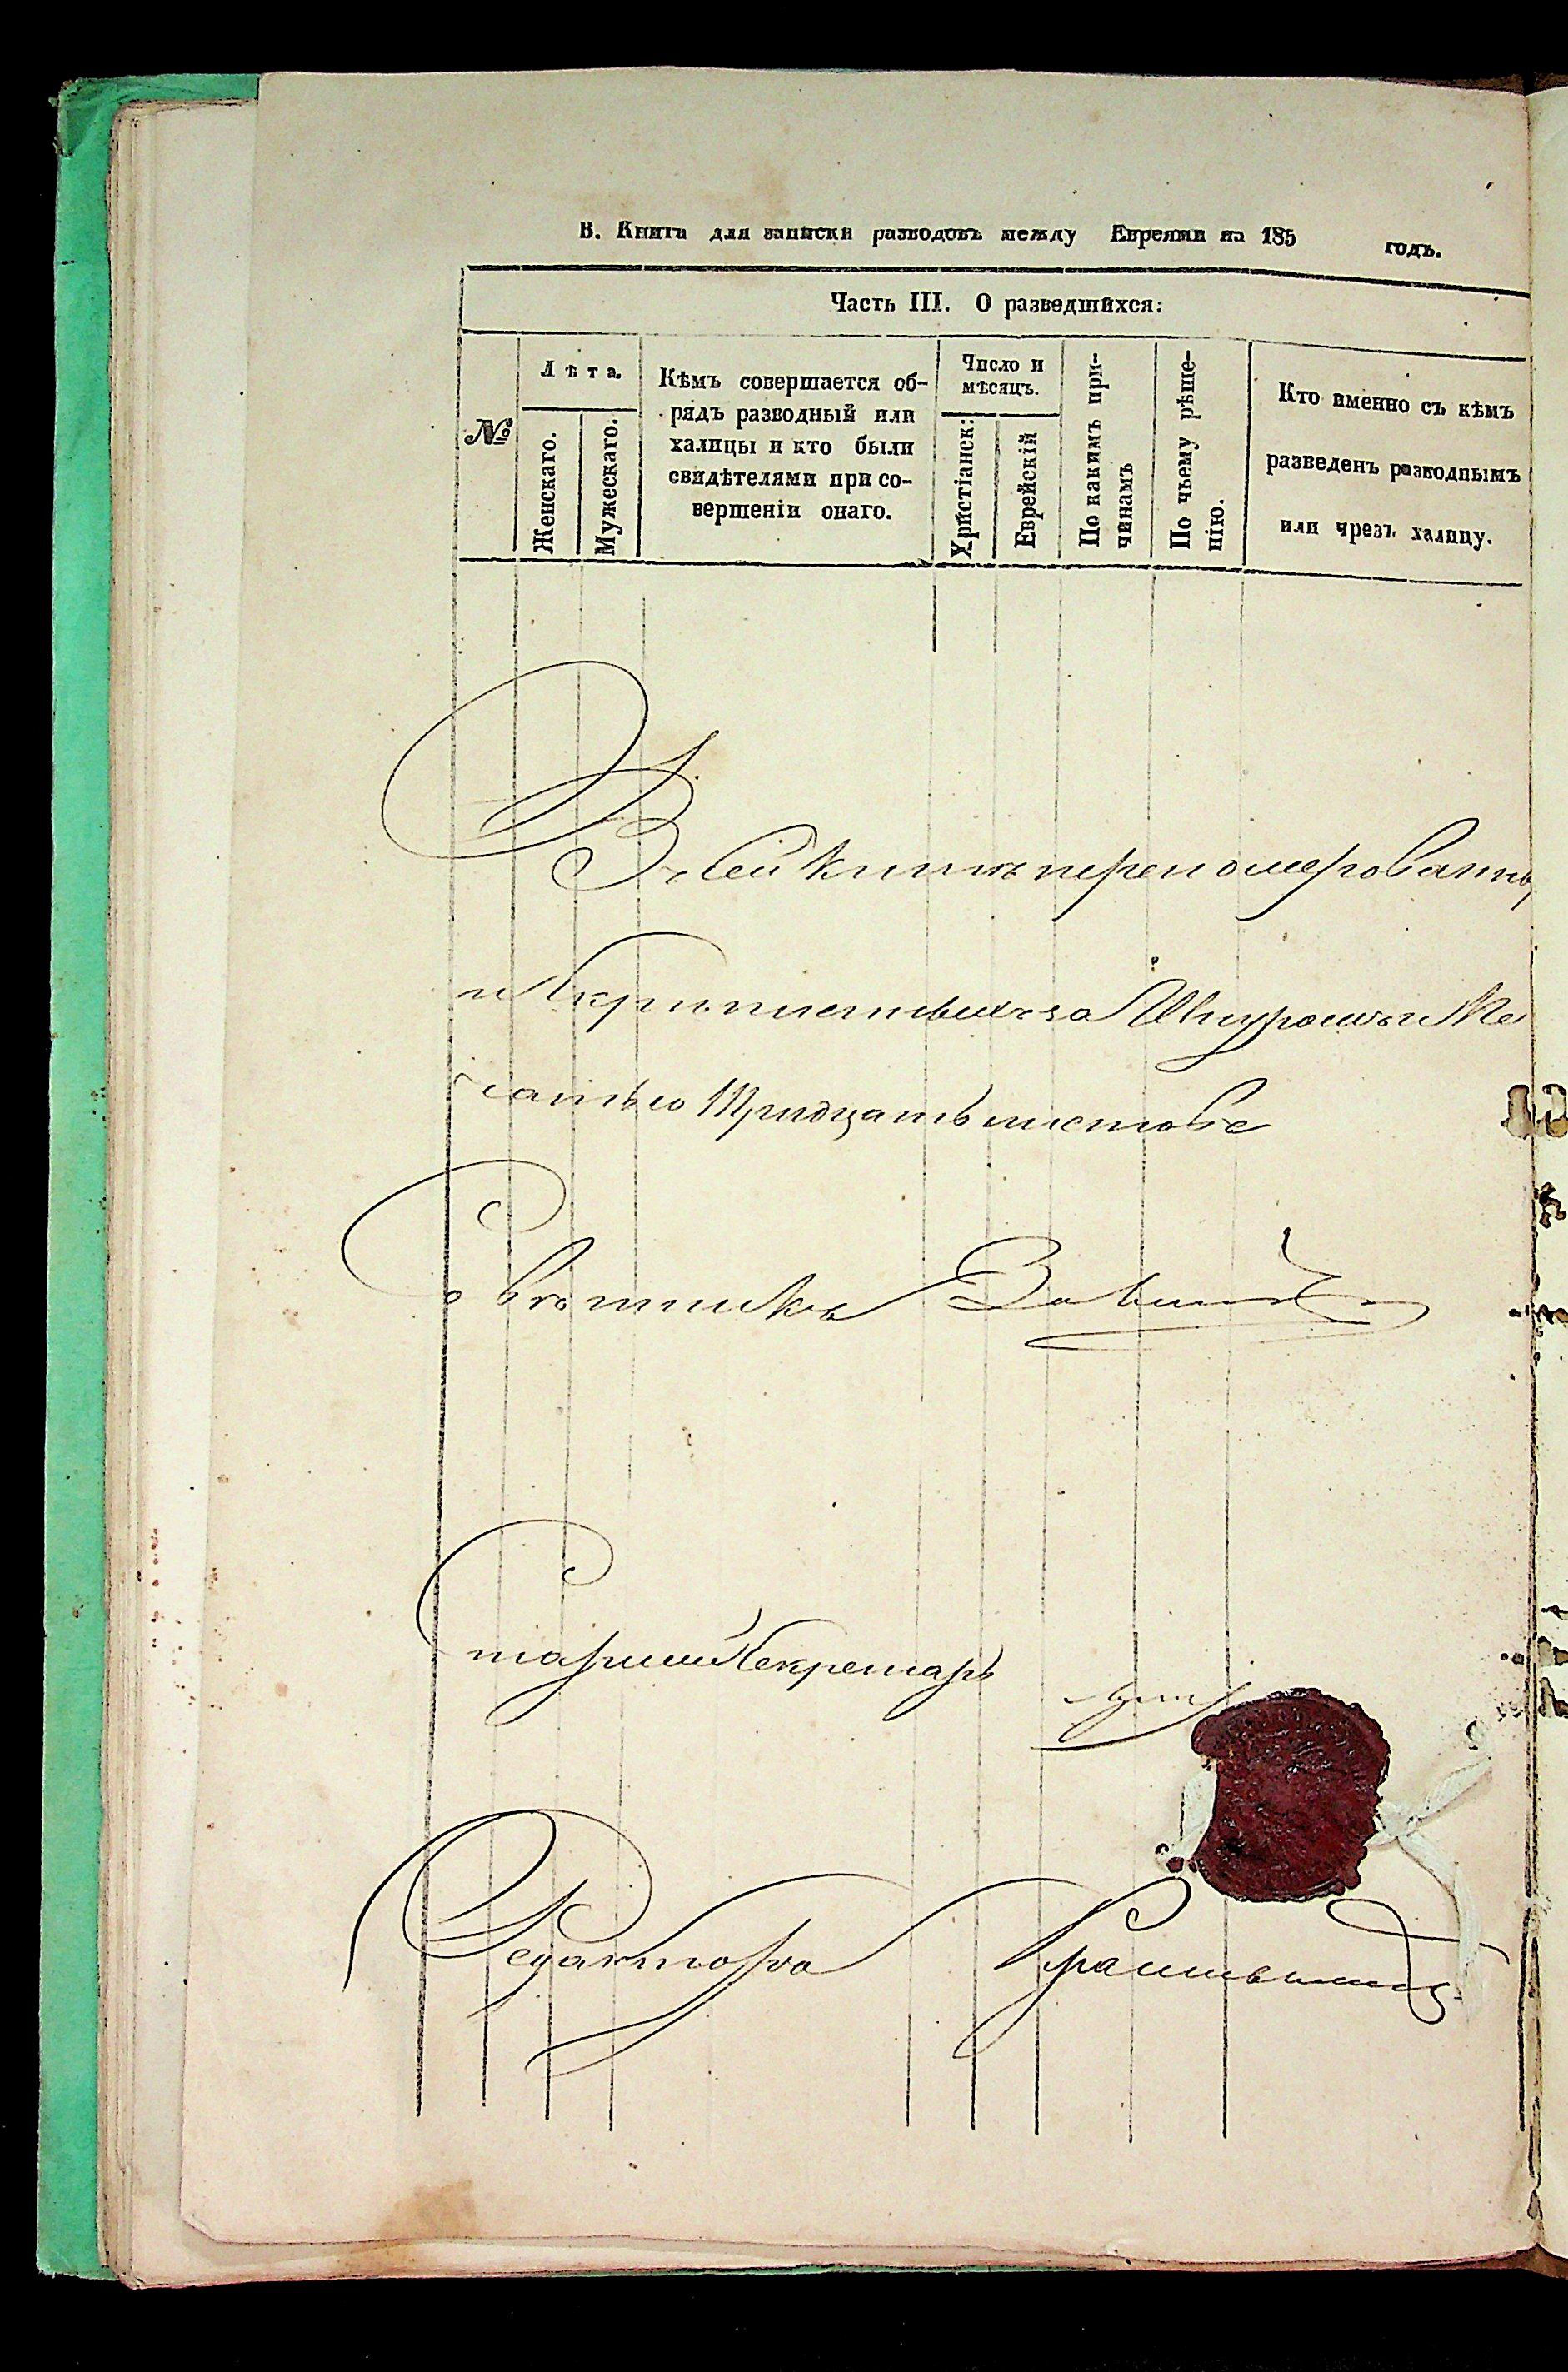 В. Книга для записки разводовъ между Евреями на 185 годъ.
Часть III. О разведшихся:
№
Лѣта.
Женскаго.
Мужескаго.
Кѣмъ совершается об-
рядъ разводный или
халицы и кто были
свидѣтелями при со-
вершеніи онаго.
Число и
мѣсяцъ.
Христіанск:
Еврейскій
По какимъ при-
чинамъ
По чьему рѣше-
нію.
Кто именно съ кѣмъ
разведенъ разводнымъ
или чрезъ халицу.
Въ сей книгѣ перепомерованныхъ
и скрѣпленныхъ за Шнуромъ и Пе
чатью Тридцать листовъ
Совѣтникъ
Старшій Секретарь
Редакторъ